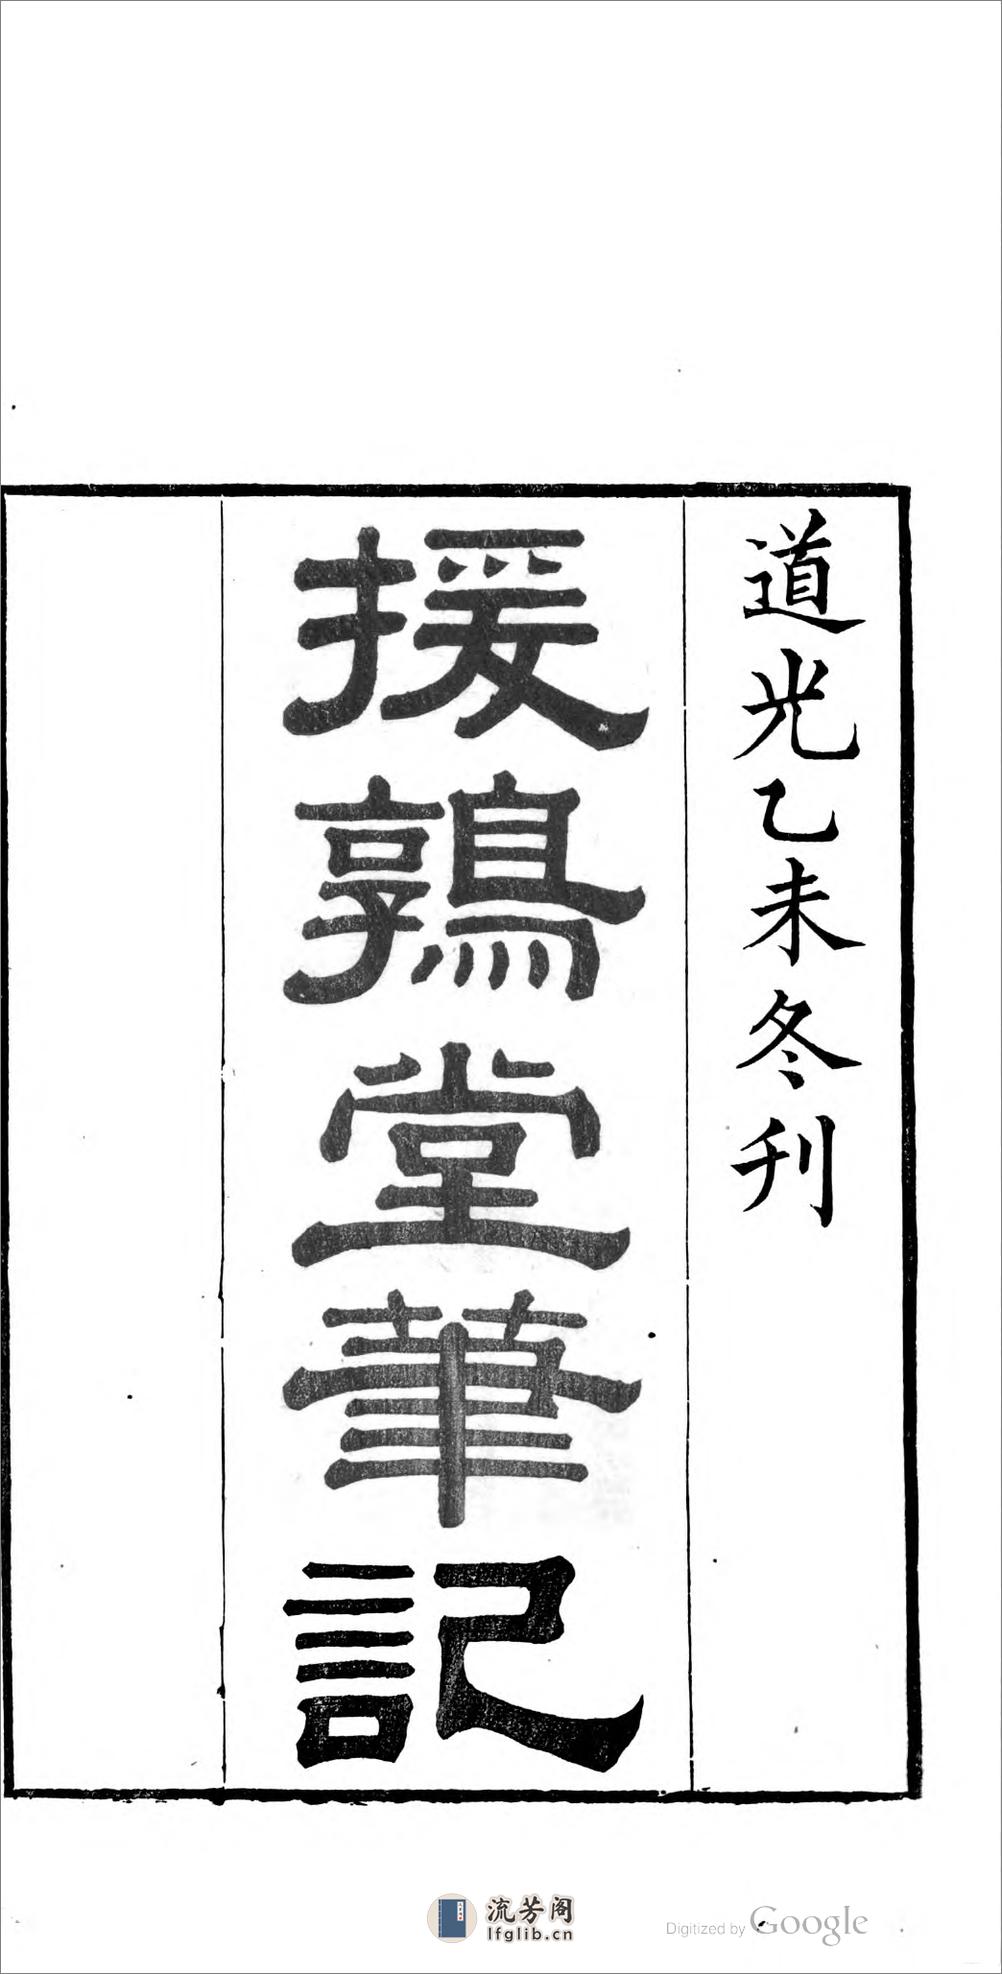 道光乙未冬刋
援鶉堂筆記
流芳阁
lfglib.cn
Digitized by Google